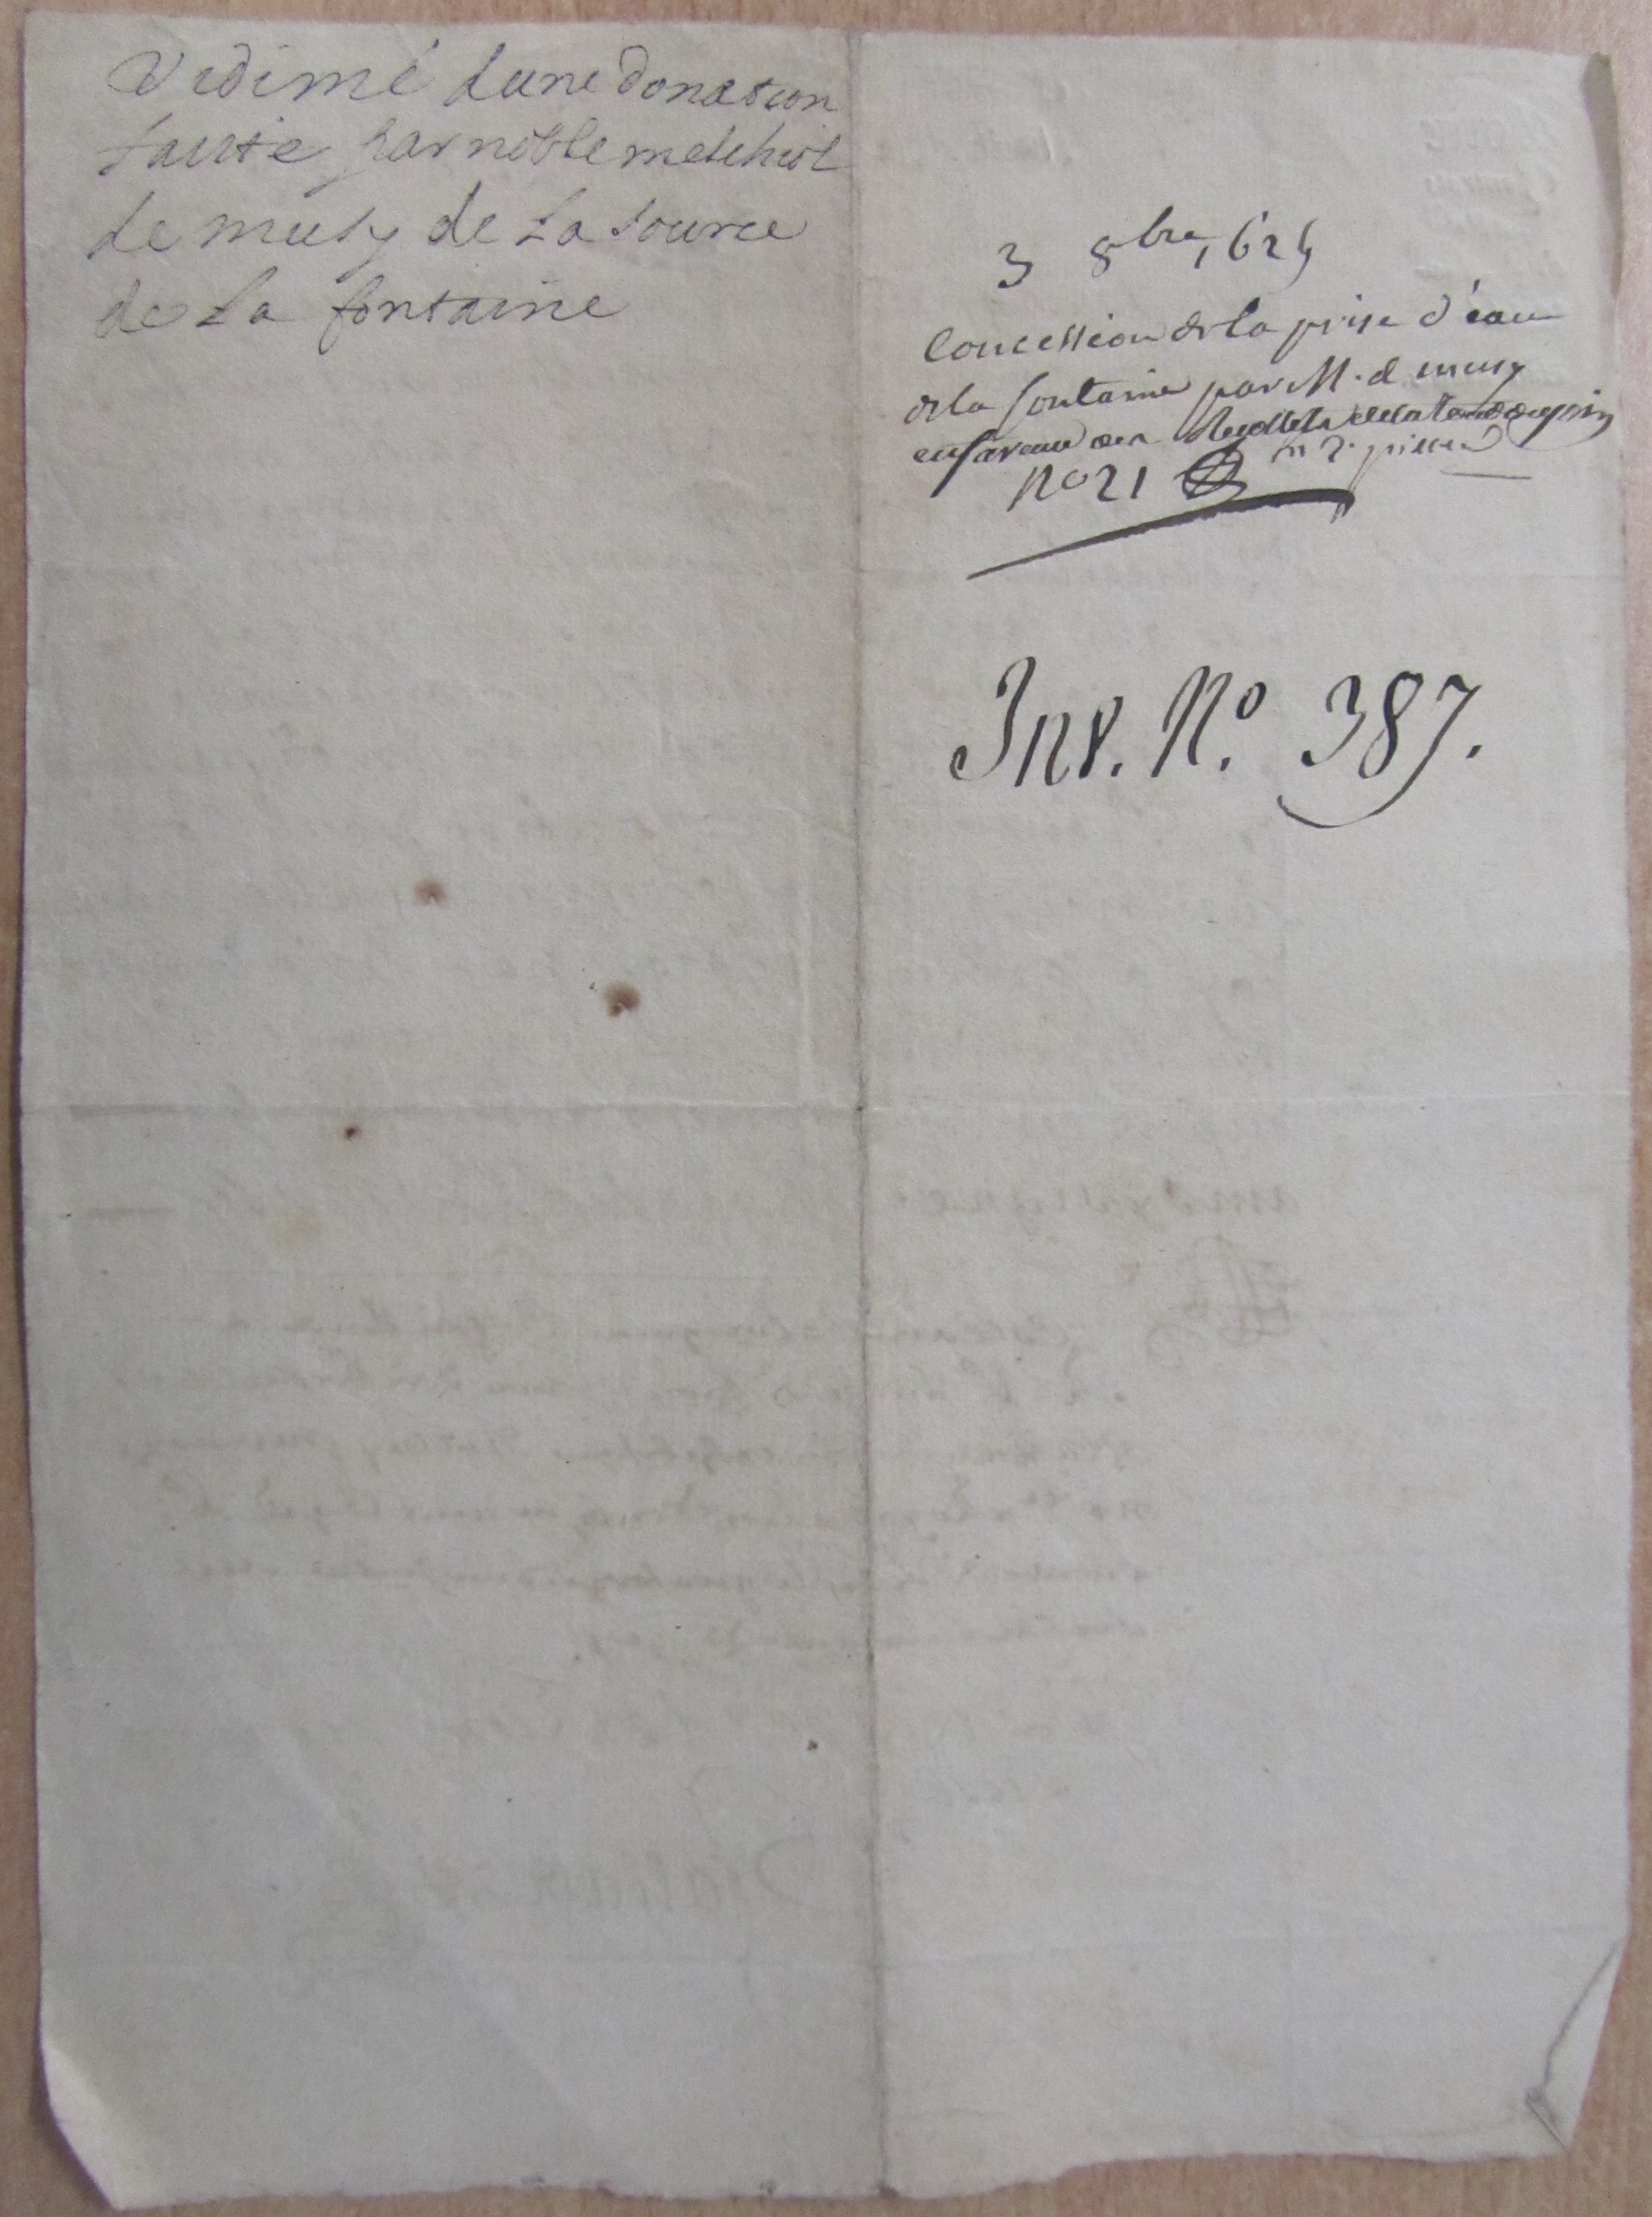 Vidimé dune donation
faitte par noble melchiol
de musy de La source
de La fontaine
3 8bre 1625
Concession de la prise d'eau
de la fontaine par M. de musy
en faveur des Recollets de la tour du pin
no 21 en 2. pieces
Inv. No. 387.